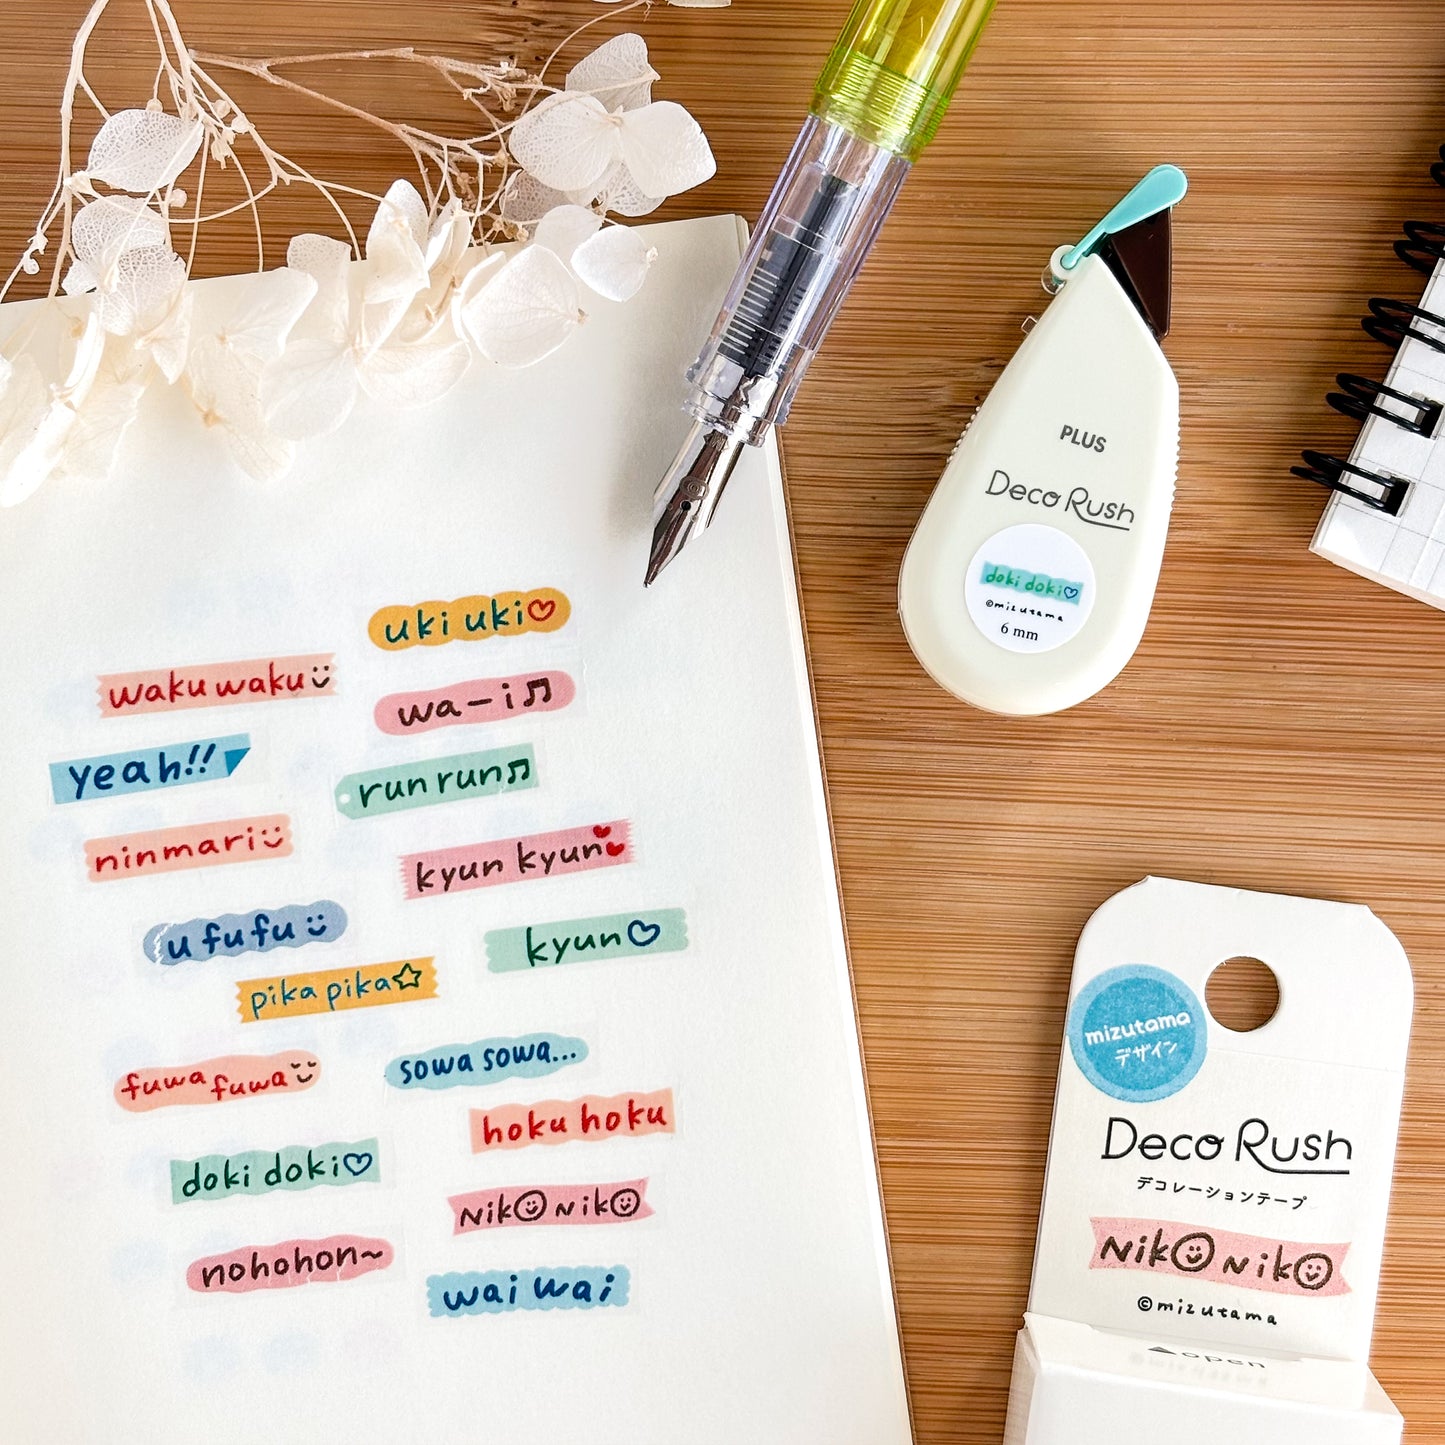 uki uki♡
waku waku
wa-i♫
yeah!!
run run♫
ninmari
kyun kyun
ufufu
kyun♡
pika pika☆
sowa sowa...
fuwa fuwa
hoku hoku
doki doki♡
NikO NikO
nohohon~
wai wai
PLUS
Deco Rush
doki doki♡
©mizutama
6 mm
mizutama
デザイン
Deco Rush
デコレーションテープ
NikO NikO
©mizutama
▲open